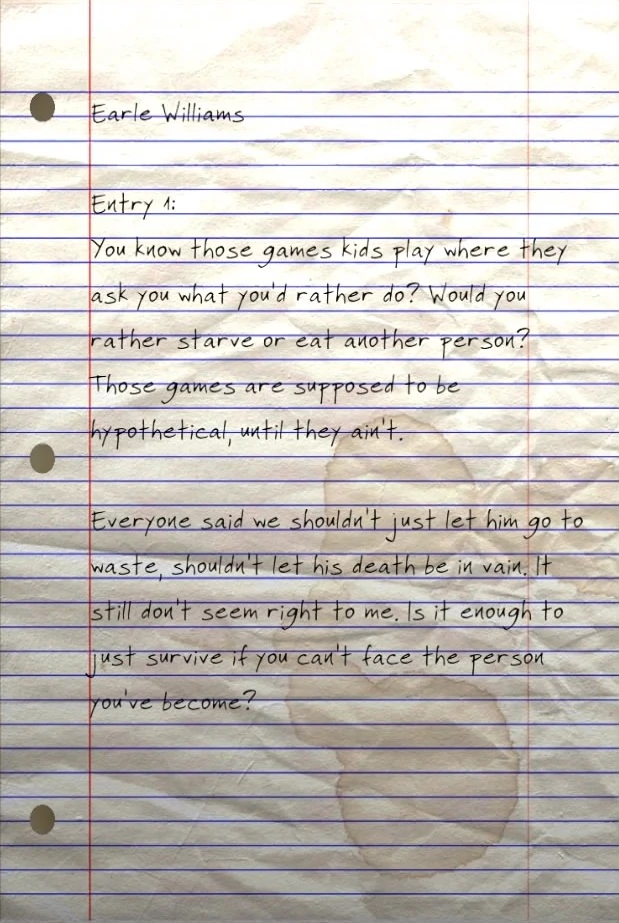 Earle Williams
Entry 1:
You know those games kids play where they
ask you what you'd rather do? Would you
rather starve or eat another person?
Those games are supposed to be
hypothetical, until they ain't.
Everyone said we shouldn't just let him go to
waste, shouldn't let his death be in vain. It
still don't seem right to me. Is it enough to
just survive if you can't face the person
you've become?